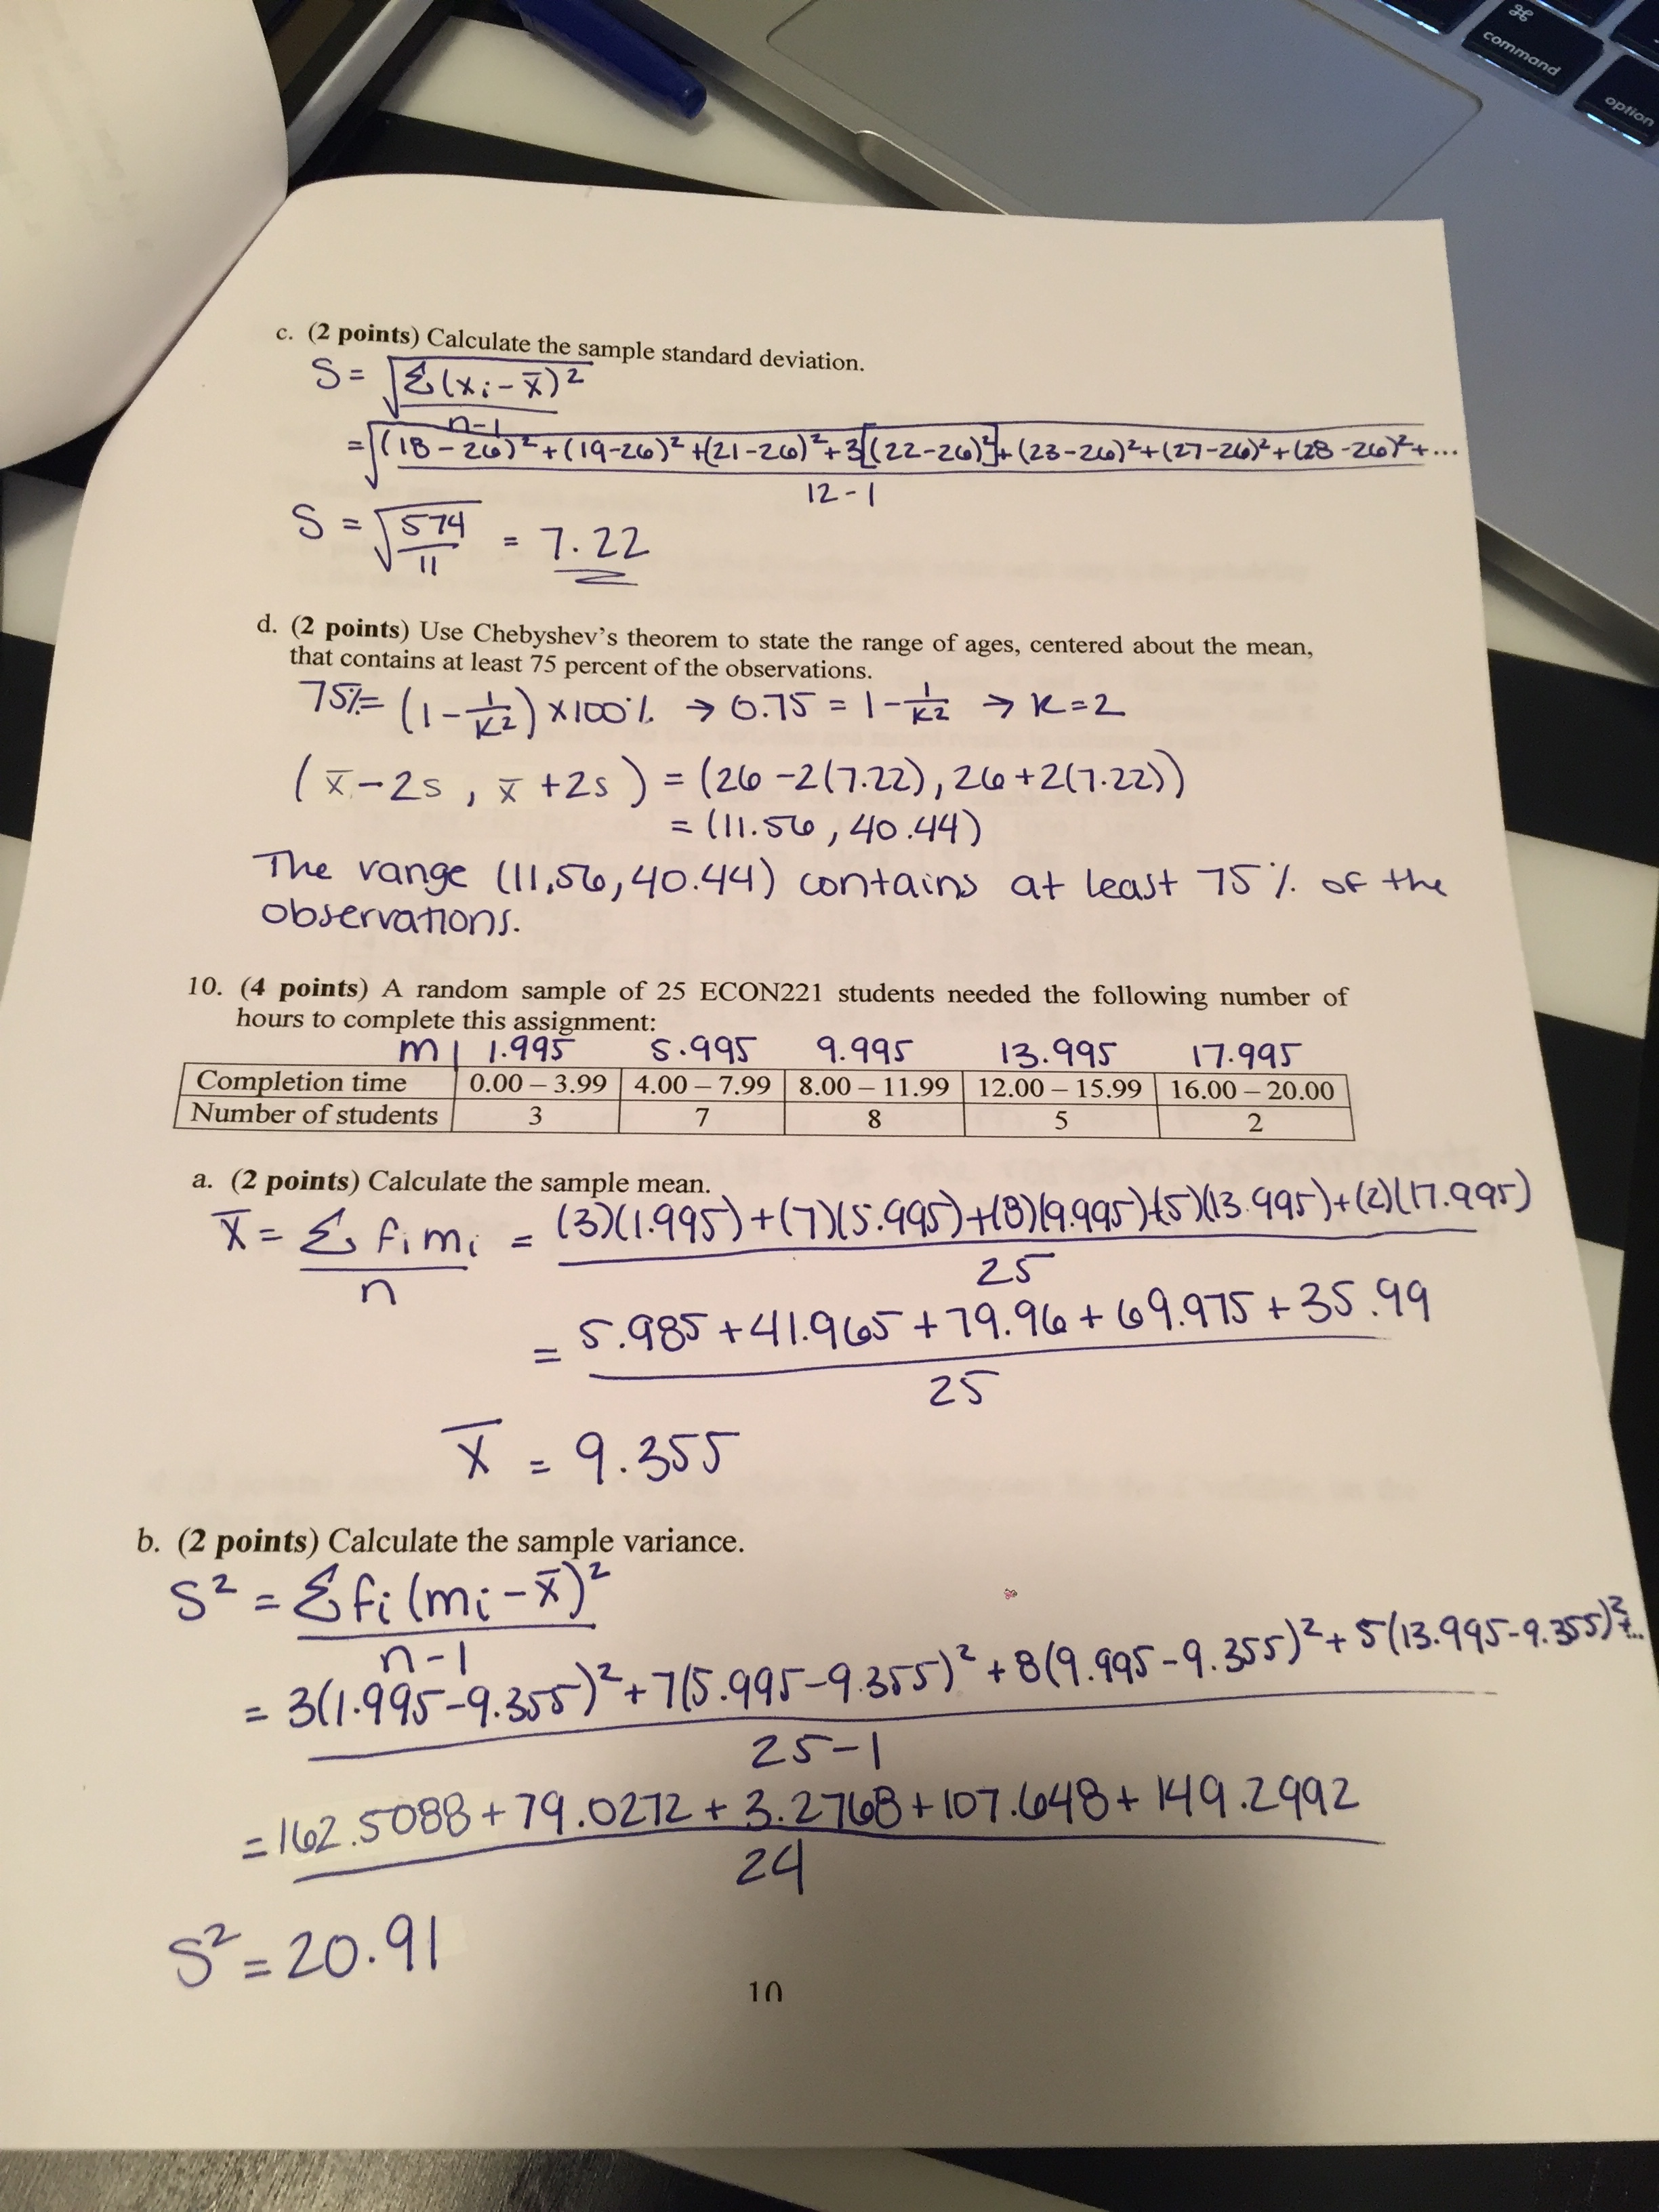 ⌘
command
option
c. (2 points) Calculate the sample standard deviation.
S = √Σ(xi - x̄)²
n-1
= √(18-26)² + (19-26)² + (21-26)² + 3[(22-26)²] + (23-26)² + (27-26)² + (28-26)² + ...
12-1
S = √574/11 = 7.22
d. (2 points) Use Chebyshev's theorem to state the range of ages, centered about the mean,
that contains at least 75 percent of the observations.
75% = (1 - 1/K²) x100% → 0.75 = 1 - 1/K² → K = 2
(x̄ - 2s, x̄ + 2s) = (26 - 2(7.22), 26 + 2(7.22))
= (11.56, 40.44)
The range (11.56, 40.44) contains at least 75% of the
observations.
10. (4 points) A random sample of 25 ECON221 students needed the following number of
hours to complete this assignment:
m | 1.995 5.995 9.995 13.995 17.995
Completion time 0.00 – 3.99 4.00 – 7.99 8.00 – 11.99 12.00 – 15.99 16.00 – 20.00
Number of students 3 7 8 5 2
a. (2 points) Calculate the sample mean.
x̄ = Σ fi mi = (3)(1.995) + (7)(5.995) + (8)(9.995) + (5)(13.995) + (2)(17.995)
n 25
= 5.985 + 41.965 + 79.96 + 69.975 + 35.99
25
x̄ = 9.355
b. (2 points) Calculate the sample variance.
S² = Σ fi (mi - x̄)²
n-1
= 3(1.995-9.355)² + 7(5.995-9.355)² + 8(9.995-9.355)² + 5(13.995-9.355)² + ...
25-1
= 162.5088 + 79.0272 + 3.2768 + 107.648 + 149.2992
24
S² = 20.91
10